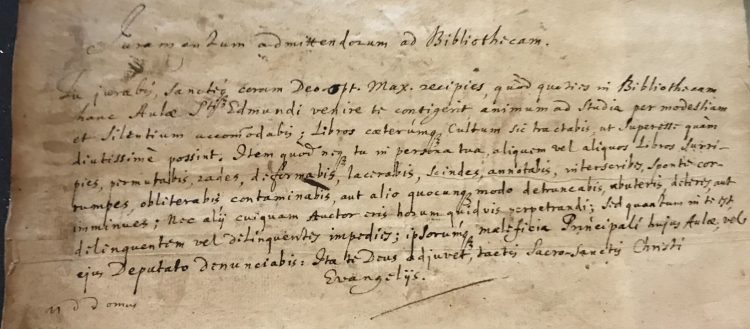 Juramentum admittendorum ad Bibliothecam.
Tu jurabis, Sanctéq coram Deo opt. Max. recipies, quòd quoties in Bibliothecam
hanc Aulæ Sti Edmundi venire te contigerit animum ad Studia per modestiam
et Silentium accomodabis; Libros cæterumq Cultum sic tractabis, ut Superesse quàm
diutissimè possint. Item quòd neq tu in persona tua, aliquem vel aliquos Libros Surri-
pies, permutabis, rades, deformabis, lacerabis, Scindes, annotabis, interscribes, Sponte cor-
rumpes, obliterabis contaminabis, aut alio quocunq modo detruncabis, abuteris, deteres aut
imminues; Nec alij cuiquam Auctor eris horum quidvis perpetrandi; Sed quantum in te est
delinquentem vel delinquentes impedies; ipsorumq maleficia Principali hujus Aulæ, vel
ejus Deputato denunciabis: Ita te Deus adjuvet, tactis Sacro-Sanctis Christi
Evangelijs.
domus